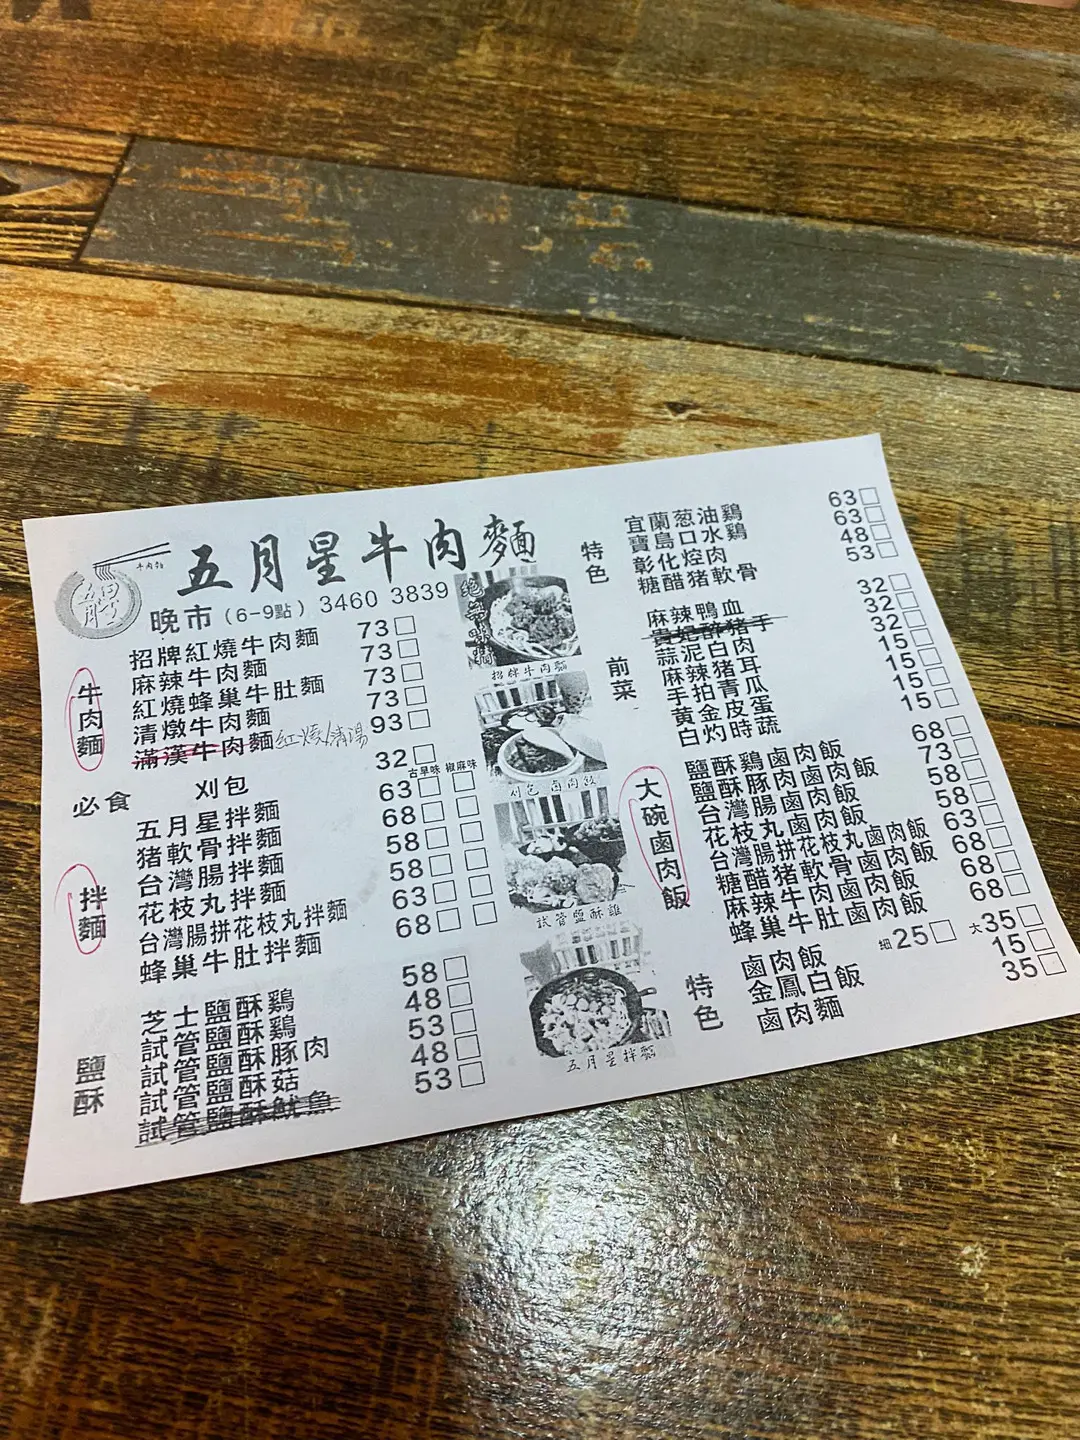 五月星牛肉麵
牛肉麵
五月
晚市 (6-9點) 3460 3839
牛肉麵
招牌紅燒牛肉麵 73
麻辣牛肉麵 73
紅燒蜂巢牛肚麵 73
清燉牛肉麵 73
滿漢牛肉麵 紅燒/清湯 93
必食 刈包 32
古早味 椒麻味
拌麵
五月星拌麵 63
豬軟骨拌麵 68
台灣腸拌麵 58
花枝丸拌麵 58
台灣腸拼花枝丸拌麵 63
蜂巢牛肚拌麵 68
鹽酥
芝士鹽酥鷄 58
試管鹽酥鷄 48
試管鹽酥豚肉 53
試管鹽酥菇 48
試管鹽酥魷魚 53
招牌牛肉麵
刈包 鹵肉飯
試管鹽酥雞
五月星拌麵
特色
宜蘭葱油鷄 63
寶島口水鷄 63
彰化焢肉 48
糖醋豬軟骨 53
前菜
麻辣鴨血 32
貴妃醉豬手 32
蒜泥白肉 32
麻辣豬耳 15
手拍青瓜 15
黃金皮蛋 15
白灼時蔬 15
大碗鹵肉飯
鹽酥鷄鹵肉飯 68
鹽酥豚肉鹵肉飯 73
台灣腸鹵肉飯 58
花枝丸鹵肉飯 58
台灣腸拼花枝丸鹵肉飯 63
糖醋豬軟骨鹵肉飯 68
麻辣牛肉鹵肉飯 68
蜂巢牛肚鹵肉飯 68
特色
鹵肉飯 細25 大35
金鳳白飯 15
鹵肉麵 35